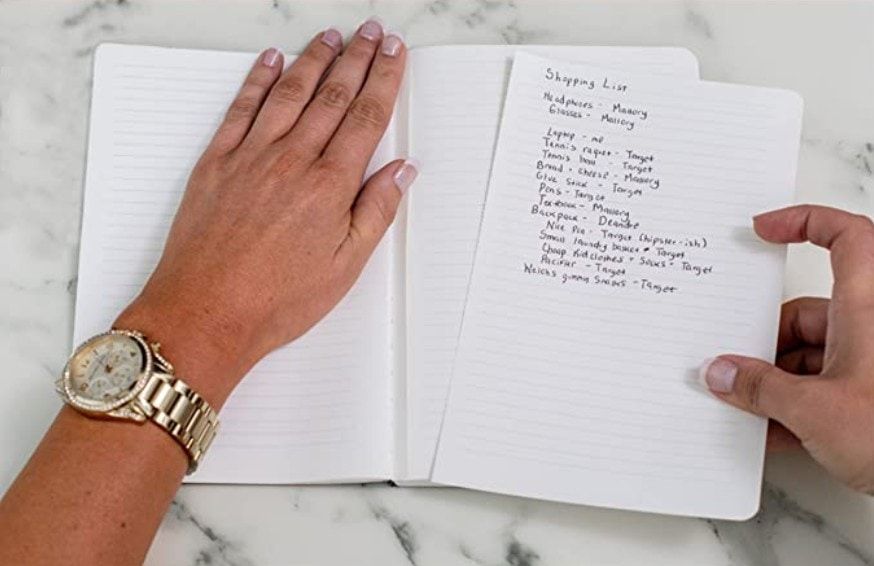 Shopping List
Headphones - Mallory
Glasses - Mallory
Laptop - me
Tennis raquet - Target
Tennis ball - Target
Bread + cheese - Mallory
Glue Stick - Target
Pens - Target
Textbook - Mallory
Backpack - Deandre
Nice Pen - Target (hipster-ish)
Small laundry basket - Target
Cheap kid clothes + socks - Target
Pacifier - Target
Welchs gummy snacks - Target